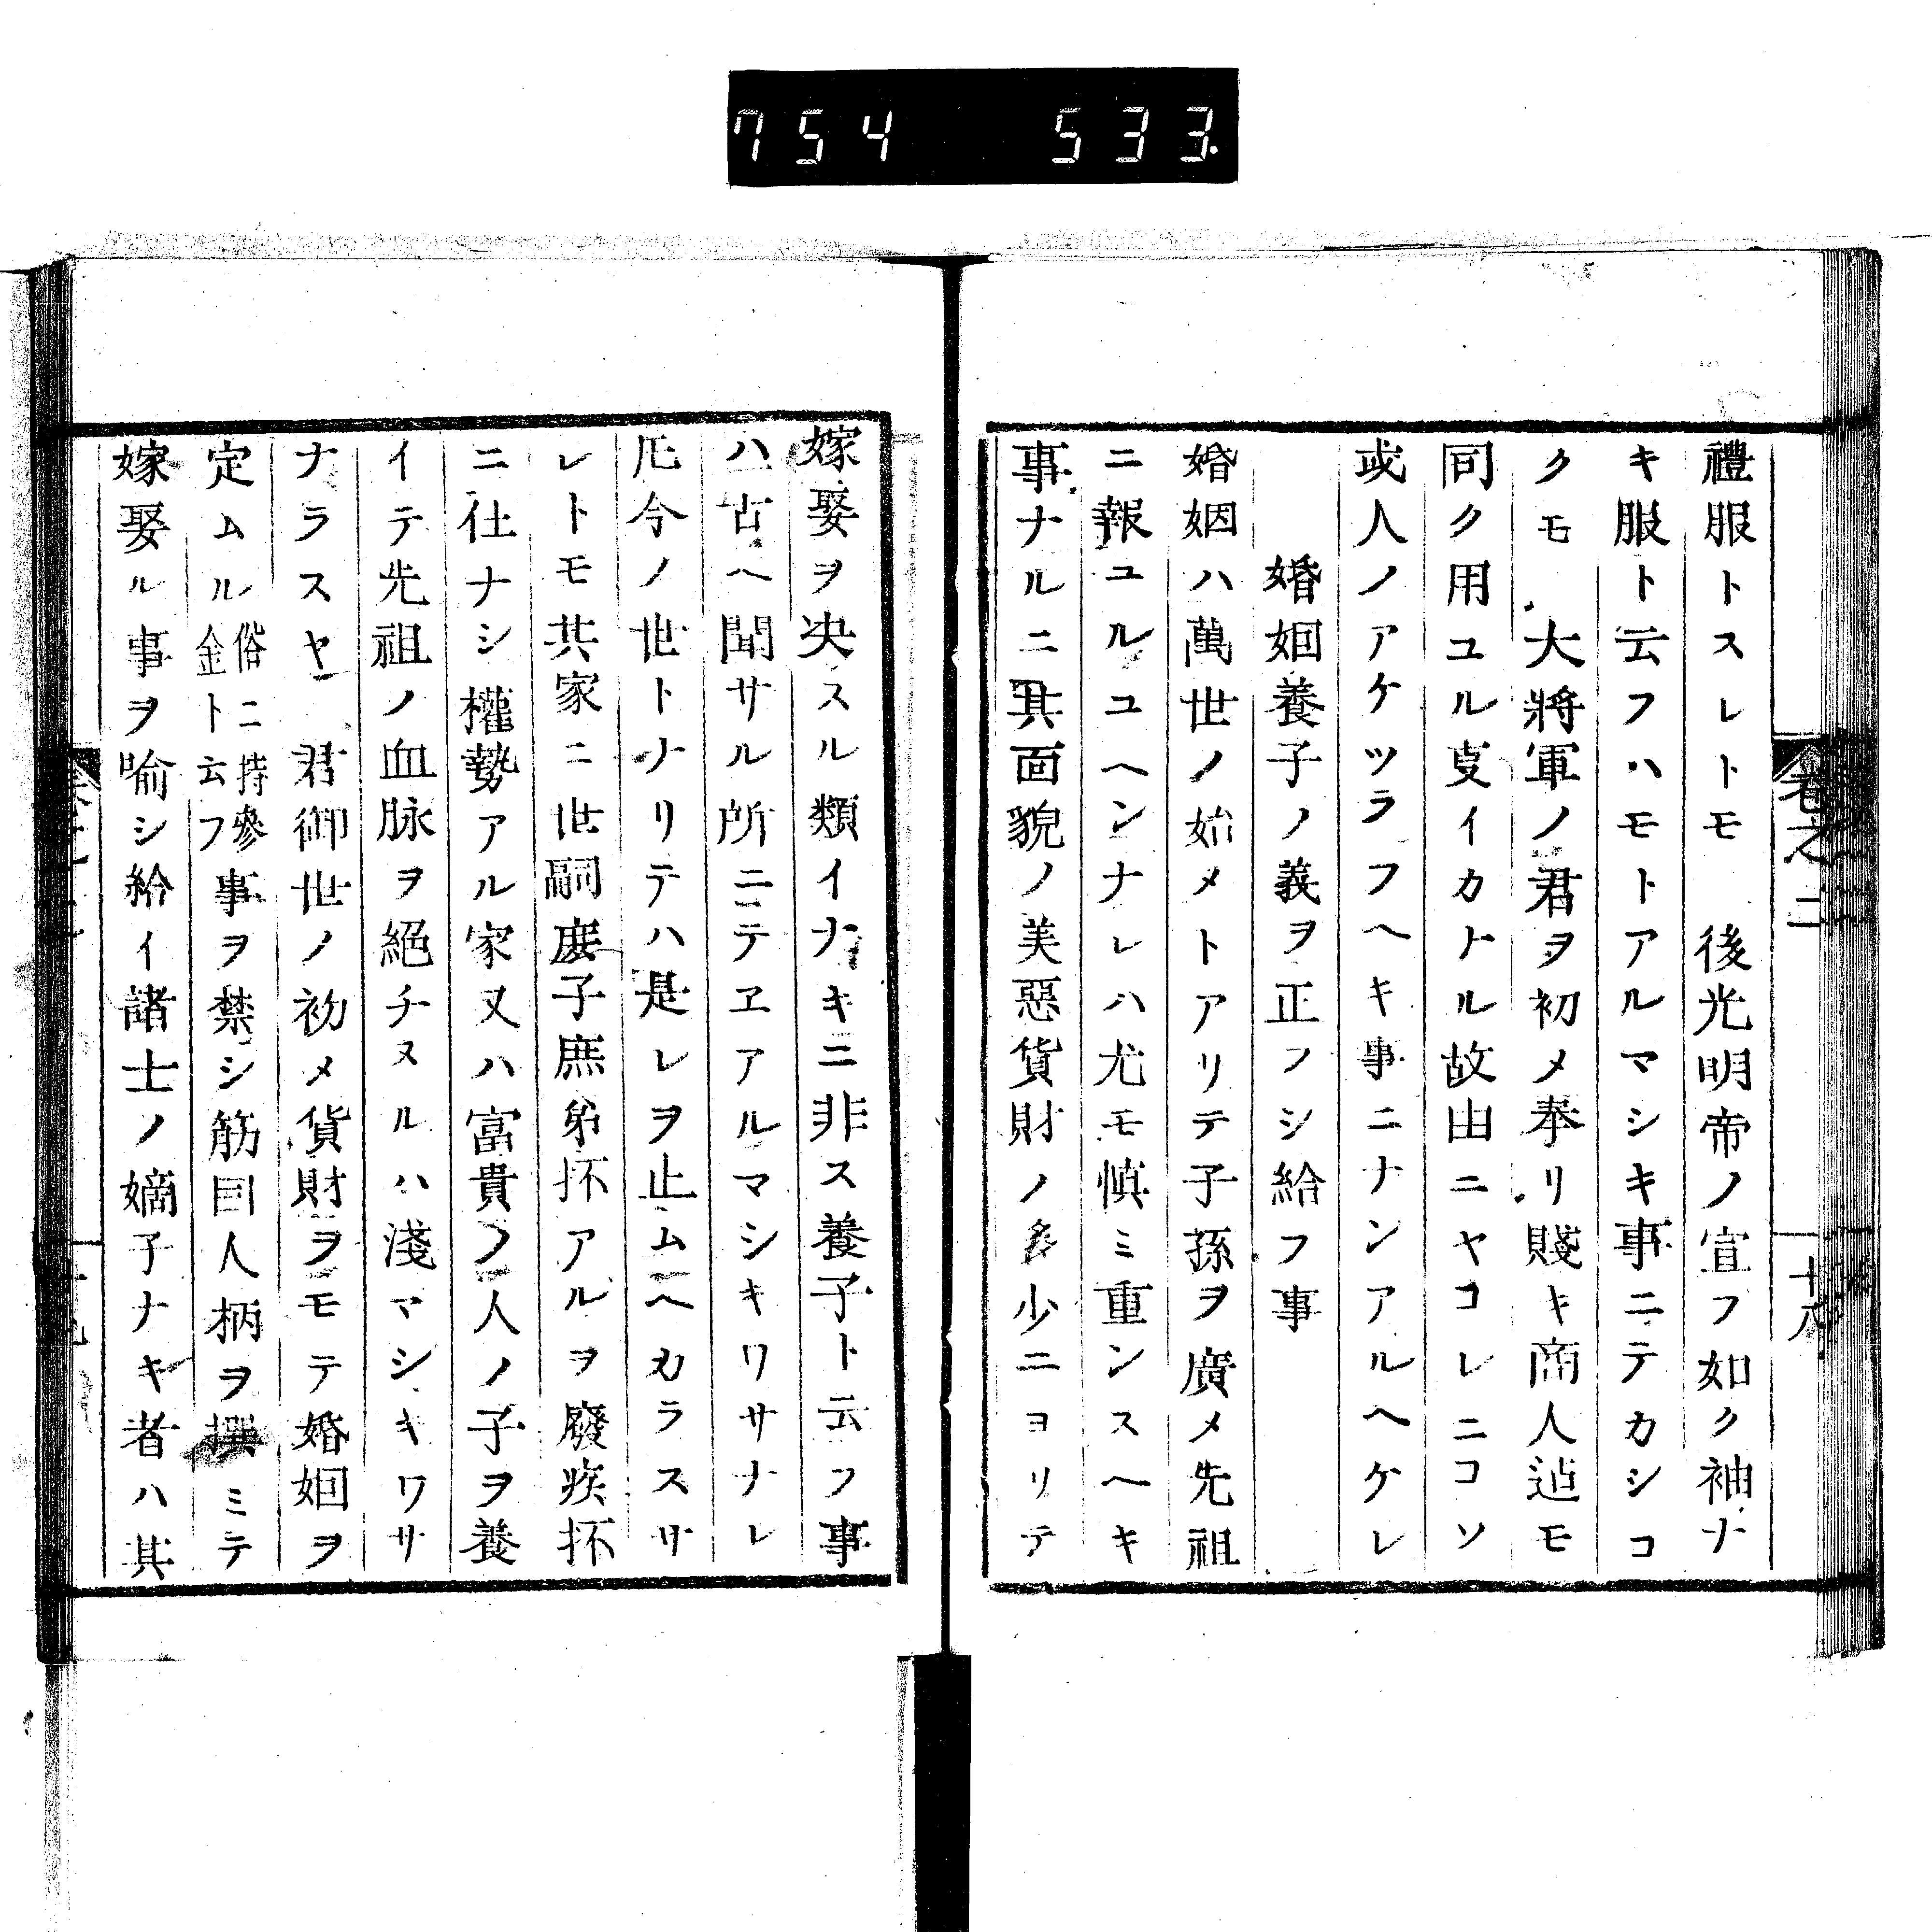 754 533.
禮服トスレトモ　後光明帝ノ宣フ如ク袖ナ
キ服ト云フハモトアルマシキ事ニテカシコ
クモ　大將軍ノ君ヲ初メ奉リ賤キ商人迠モ
同ク用ユル㕝イカナル故由ニヤコレニコソ
或人ノアケツラフヘキ事ニナンアルヘケレ
婚姻養子ノ義ヲ正フシ給フ事
婚姻ハ萬世ノ始メトアリテ子孫ヲ廣メ先祖
ニ報ユルユヘンナレハ尤モ慎ミ重ンスヘキ
事ナルニ其面貌ノ美惡貨財ノ多少ニヨリテ
卷之二
十八
嫁娶ヲ决スル類イナキニ非ス養子ト云フ事
ハ古ヘ聞サル所ニテヱアルマシキワサナレ
𪜈今ノ世トナリテハ是レヲ止ムヘカラスサ
レトモ其家ニ世嗣庶子庶弟抔アルヲ廢疾抔
ニ仕ナシ權勢アル家又ハ富貴ノ人ノ子ヲ養
イテ先祖ノ血脉ヲ絕チヌルハ淺マシキワサ
ナラスヤ　君御世ノ初メ貨財ヲモテ婚姻ヲ
定ムル俗ニ持參金ト云フ事ヲ禁シ筋目人柄ヲ撰ミテ
嫁娶ル事ヲ喻シ給イ諸士ノ嫡子ナキ者ハ其